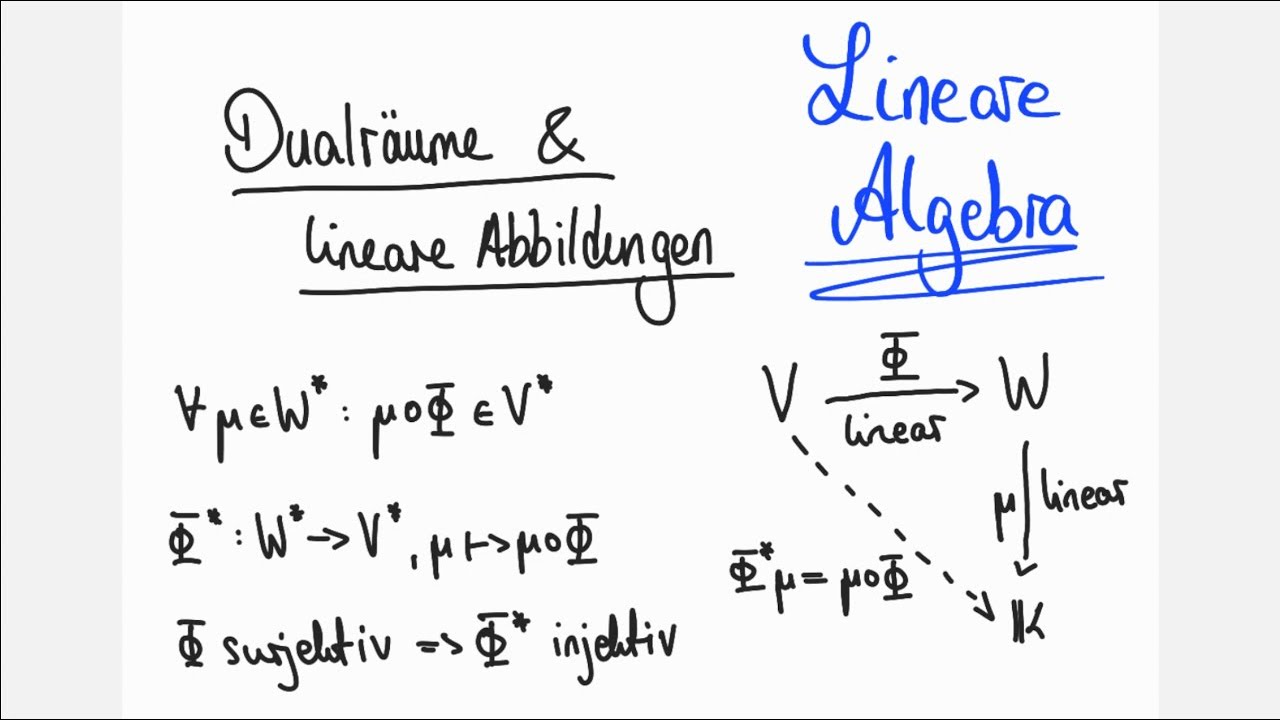 Dualräume &
lineare Abbildungen
Lineare
Algebra
∀ μ ∈ W* : μ∘Φ ∈ V*
Φ* : W* → V*, μ ↦ μ∘Φ
Φ surjektiv => Φ* injektiv
V Φ W
linear
μ linear
Φ*μ = μ∘Φ
𝕂